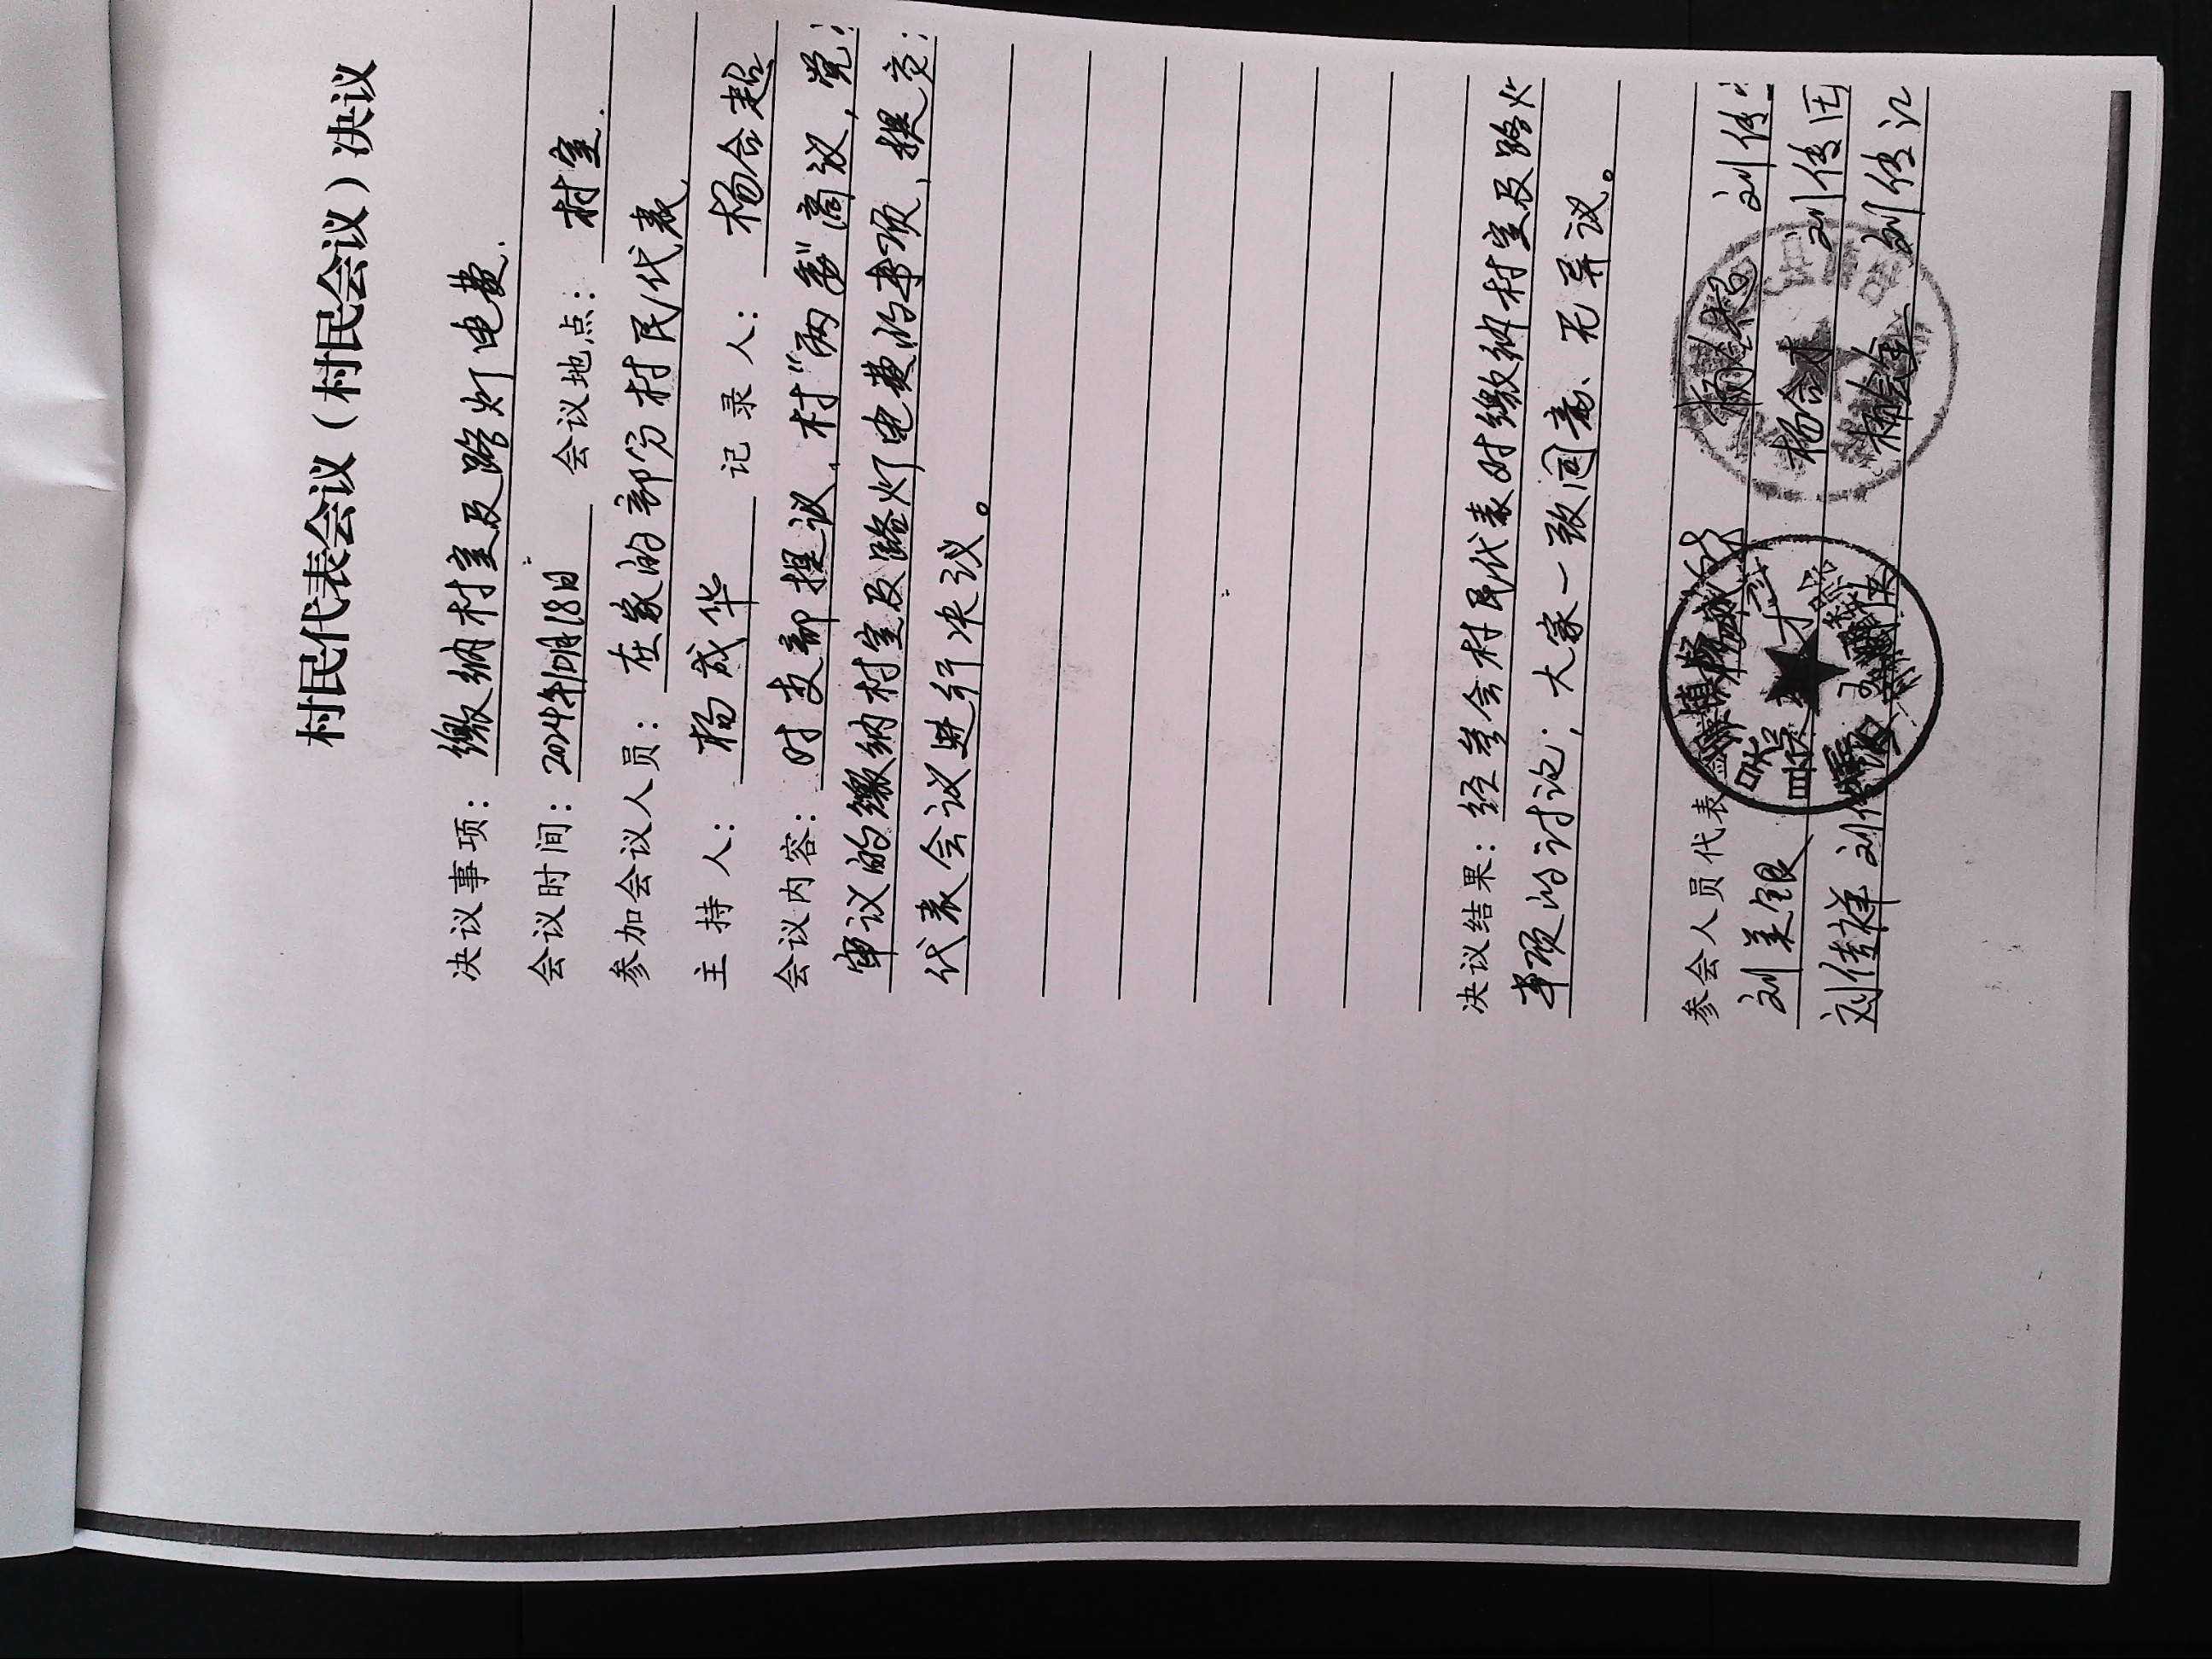 村民代表会议（村民会议）决议
决议事项：缴纳村室及路灯电费.
会议时间：2024年10月18日 会议地点：村室.
参加会议人员：在家的部份村民代表
主 持 人：杨成华 记 录 人：杨合超
会议内容：对支部提议、村“两委”商议，党
审议的缴纳村室及路灯电费的事项、提交
代表会议进行决议。
决议结果：经参会村民代表对缴纳村室及路火
事项的讨论；大家一致同意、无异议。
参会人员代表 刘传
刘美银 杨合才 刘传国
刘传祥 杨会金 刘传江